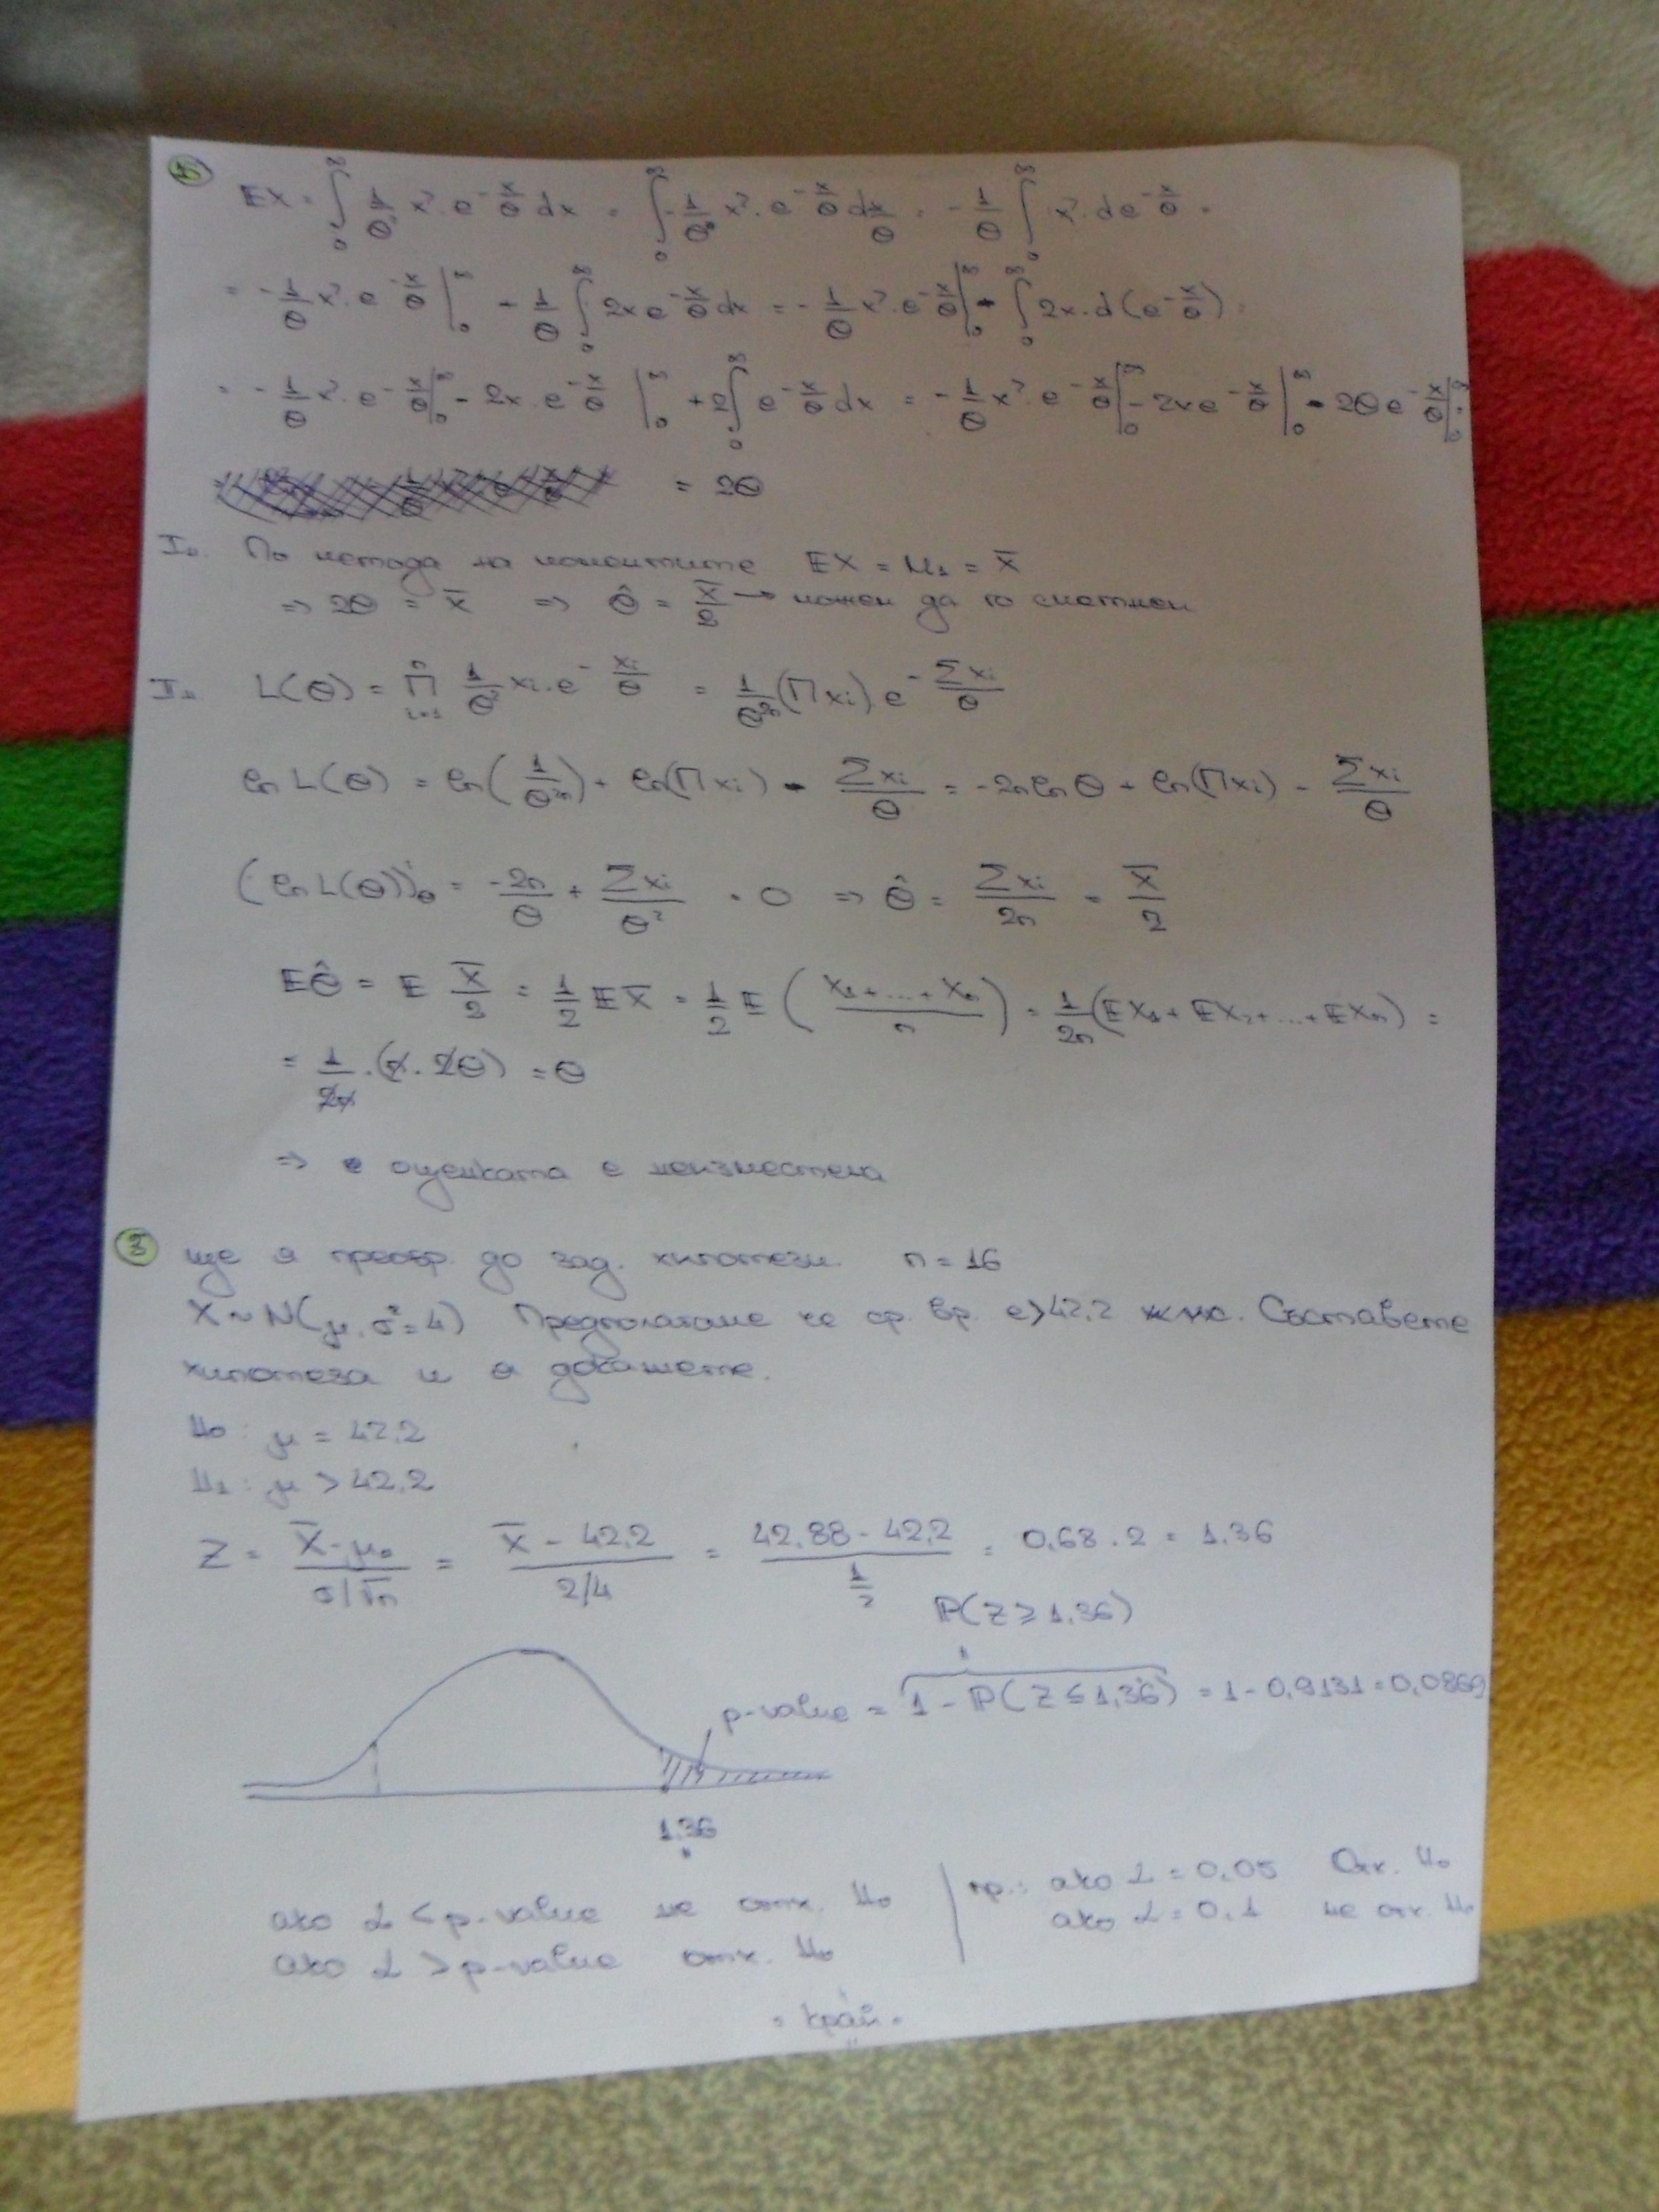 5
EX = ∫₀^∞ 1/θ² x². e^(-x/θ) dx = ∫₀^∞ -1/θ² x². e^(-x/θ) dx/θ = -1/θ ∫₀^∞ x². de^(-x/θ) =
= -1/θ x². e^(-x/θ) |₀^∞ + 1/θ ∫₀^∞ 2x e^(-x/θ) dx = -1/θ x². e^(-x/θ) |₀^∞ - ∫₀^∞ 2x. d(e^(-x/θ)) =
= -1/θ x². e^(-x/θ) |₀^∞ - 2x e^(-x/θ) |₀^∞ + 2∫₀^∞ e^(-x/θ) dx = -1/θ x². e^(-x/θ) |₀^∞ - 2xe^(-x/θ) |₀^∞ - 2θe^(-x/θ) |₀^∞ =
= 2θ
I. По метода на моментите EX = M₁ = x̄
=> 2θ = x̄ => θ̂ = x̄/2 → можем да го сметнем
II. L(θ) = ∏ᵢ₌₁ⁿ 1/θ² xᵢ. e^(-xᵢ/θ) = 1/θ²ⁿ (∏xᵢ) e^(-∑xᵢ/θ)
ln L(θ) = ln(1/θ²ⁿ) + ln(∏xᵢ) - ∑xᵢ/θ = -2n ln θ + ln(∏xᵢ) - ∑xᵢ/θ
(ln L(θ))'θ = -2n/θ + ∑xᵢ/θ² = 0 => θ̂ = ∑xᵢ/2n = x̄/2
Eθ̂ = E x̄/2 = 1/2 E x̄ = 1/2 E ((x₁+...+xₙ)/n) = 1/2n (EX₁ + EX₂ + ... + EXₙ) =
= 1/2n . (n. 2θ) = θ
=> оценката е неизместена
3 ще я преобр. до зад. хипотези. n = 16
X ~ N(μ, σ² = 4) Предполагаме че ср. вр. е > 42,2 Съставете
хипотеза и я докажете.
H₀: μ = 42,2
H₁: μ > 42,2
Z = (X̄ - μ₀)/(σ/√n) = (X̄ - 42,2)/(2/4) = (42,88 - 42,2)/(1/2) = 0,68 . 2 = 1,36
P(Z ≥ 1,36)
p-value = 1 - P(Z ≤ 1,36) = 1 - 0,9131 = 0,0869
1,36
ако α < p-value не отх. H₀
ако α > p-value отх. H₀
пр.: ако α = 0,05 Отх. H₀
ако α = 0,1 не отх. H₀
= край =